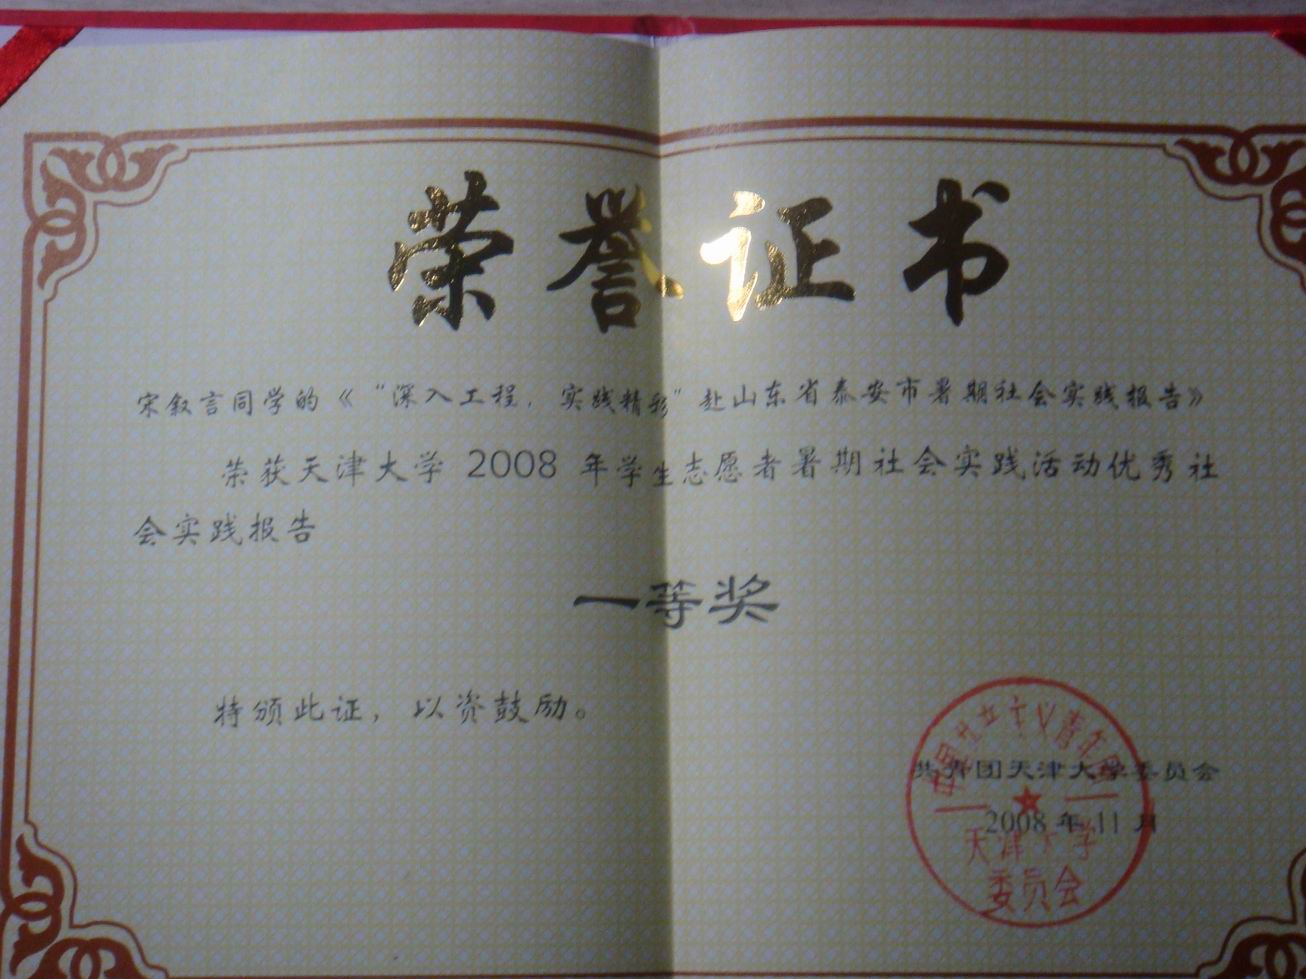 荣誉证书
宋叙言同学的《“深入工程，实践精彩”赴山东省泰安市暑期社会实践报告》
荣获天津大学 2008 年学生志愿者暑期社会实践活动优秀社
会实践报告
一等奖
特颁此证，以资鼓励。
共青团天津大学委员会
2008 年 11 月
中国共产主义青年团
天津大学
委员会